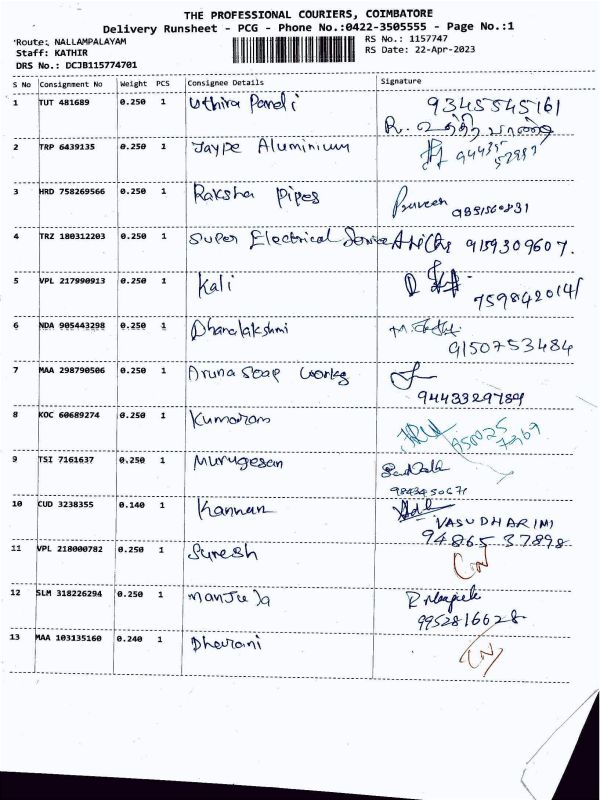 THE PROFESSIONAL COURIERS, COIMBATORE
Delivery Runsheet - PCG - Phone No.:0422-3505555 - Page No.:1
Route: NALLAMPALAYAM RS No.: 1157747
Staff: KATHIR RS Date: 22-Apr-2023
DRS No.: DCJB115774701
S No Consignment No Weight PCS Consignee Details Signature
1 TUT 481689 0.250 1 Uthira Pandi 9345545161
R.
2 TRP 6439135 0.250 1 Jaype Aluminium
3 HRD 758269566 0.250 1 Raksha Pipes Praveen
4 TRZ 180312203 0.250 1 Super Electrical Service 9159309607.
5 VPL 217990913 0.250 1 Kali
7598420141
6 NDA 905443298 0.250 1 Dhanalakshmi
9150753484
7 MAA 298790506 0.250 1 Aruna Soap works
9443329789
8 KOC 60689274 0.250 1 Kumaran
9 TSI 7161637 0.250 1 Murugesan
10 CUD 3238355 0.140 1 Kannan
VASUDHARINI
94865 37898
11 VPL 218000782 0.250 1 Suresh
CN
12 SLM 318226294 0.250 1 manjula
9952816628
13 MAA 103135160 0.240 1 Dharani
CN